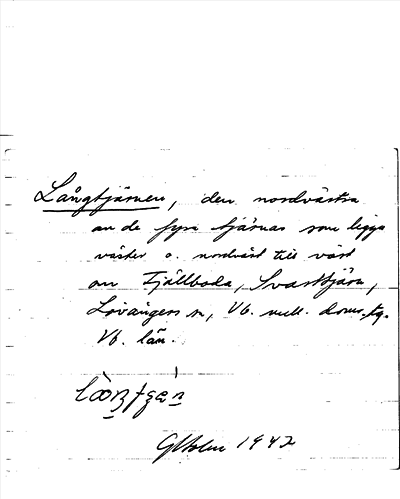 Långtjärnen, den nordvästra
av de fyra tjärnar som ligga
väster o. nordväst till väst
om Fjällboda, Svarttjärn,
Lövångers sn, Vb. mell. doms.tg.
Vb. län.
1942